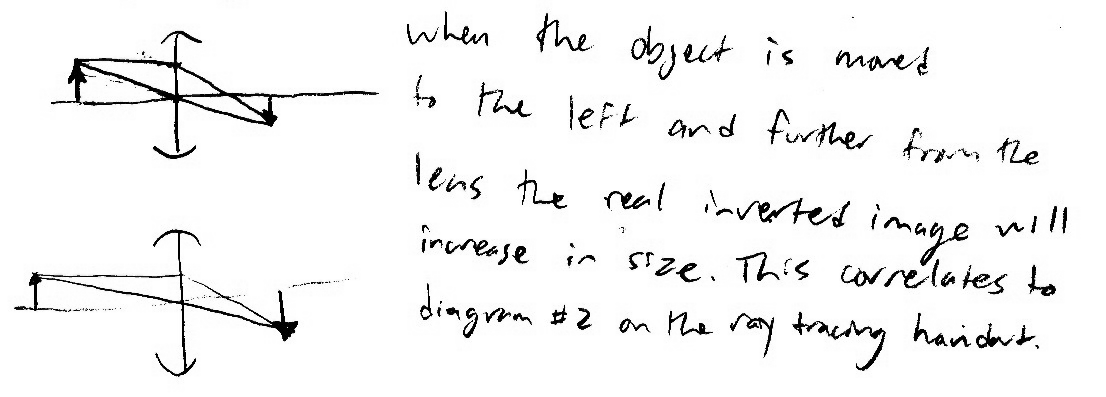 when the object is moved
to the left and further from the
lens the real inverted image will
increase in size. This correlates to
diagram #2 on the ray tracing handout.